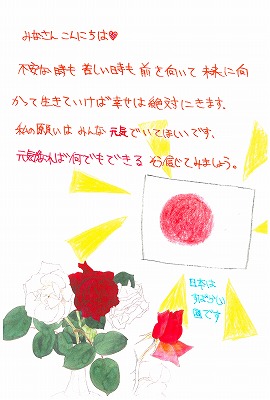 みなさん こんにちは♥
不安な時も 苦しい時も 前を向いて 未来に向
かって生きていけば幸せは絶対にきます。
私の願いは みんな 元気でいてほしいです。
元気があれば何でもできる そう信じてみましょう。
日本は
すばらしい
国です